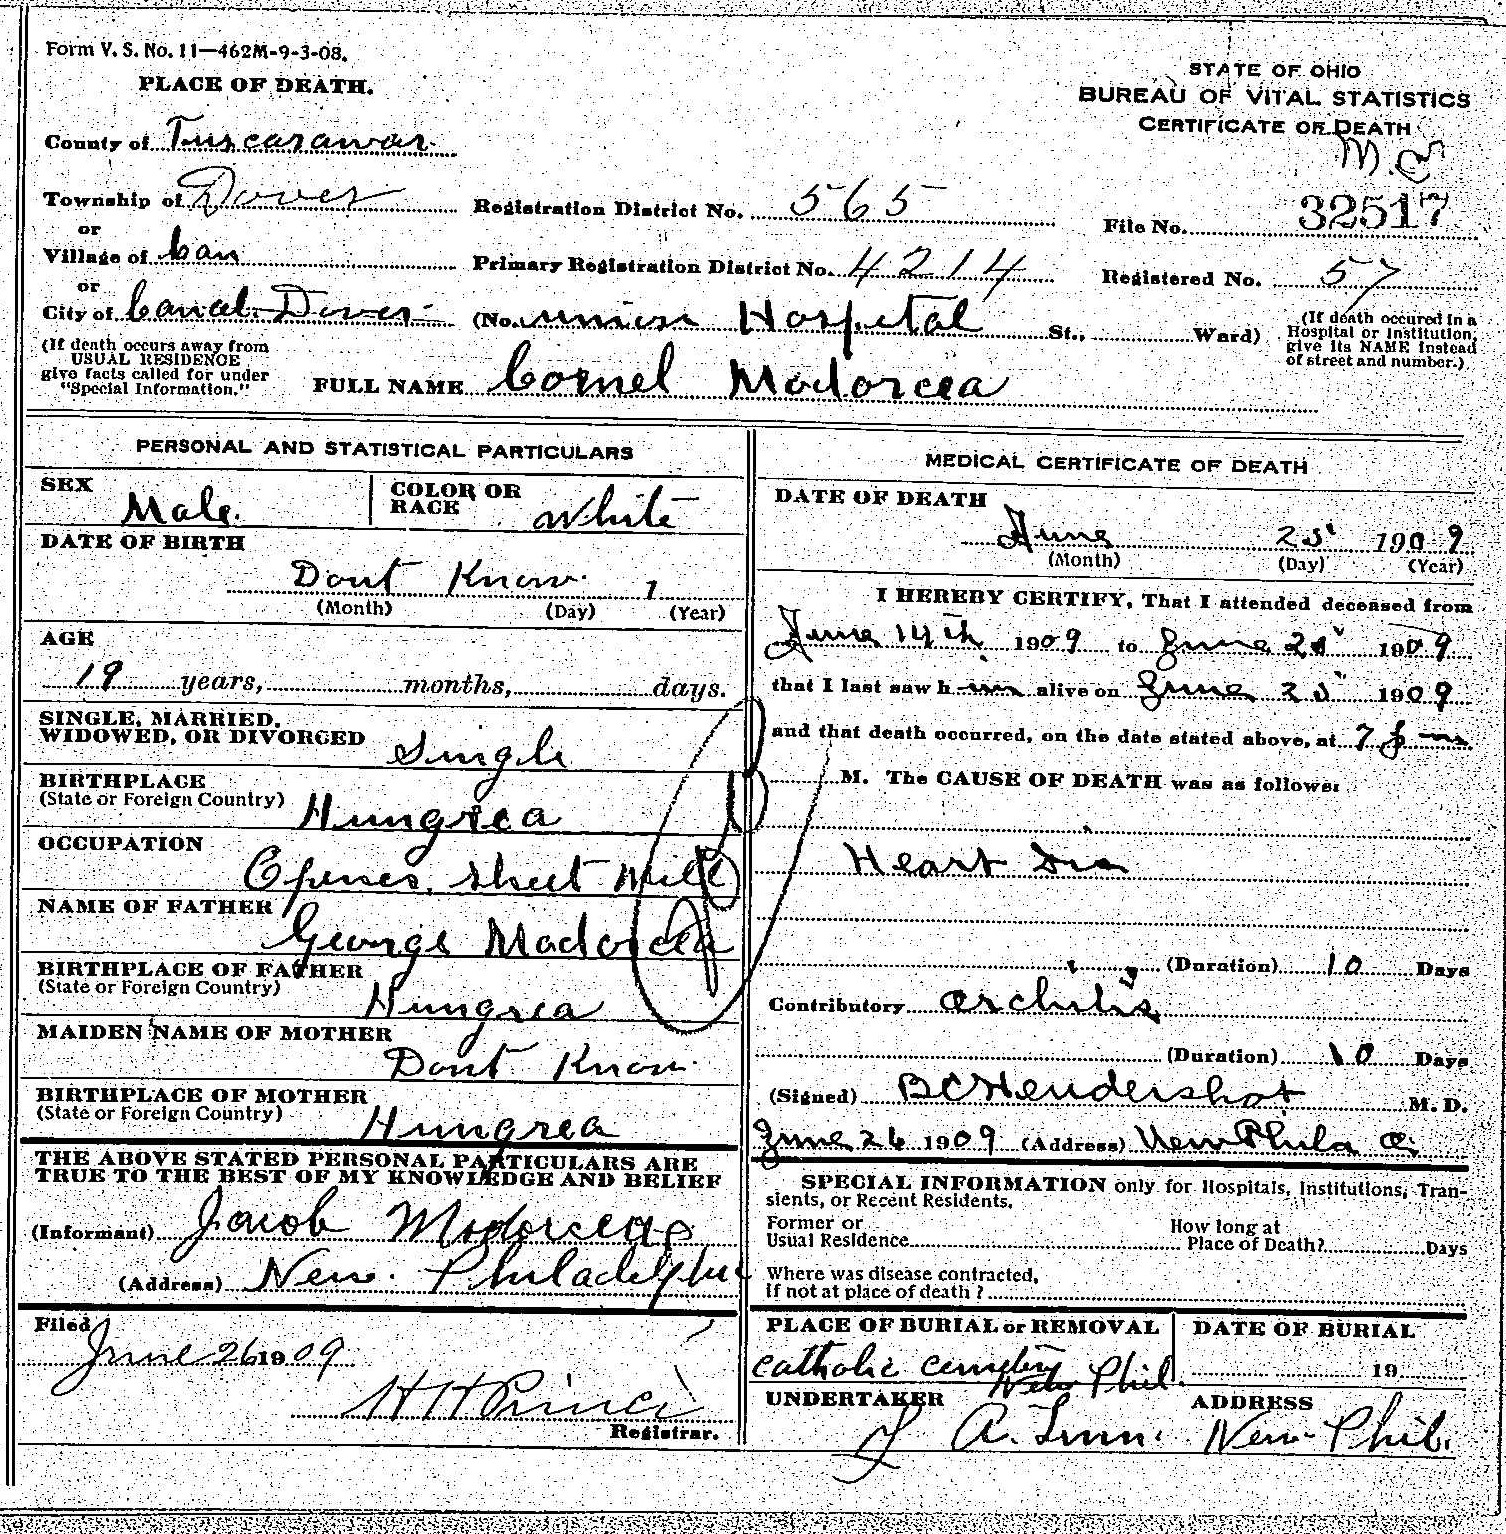 Form V. S. No. 11—462M-9-3-08.
PLACE OF DEATH.
STATE OF OHIO
BUREAU OF VITAL STATISTICS
CERTIFICATE OF DEATH
County of Tuscarawas
Township of Dover Registration District No. 565 File No. 32517
or
Village of Can Primary Registration District No. 4214 Registered No. 57
or
City of Canal Dover (No. Union Hospital St., Ward) (If death occured in a Hospital or Institution, give its NAME instead of street and number.)
(If death occurs away from USUAL RESIDENCE give facts called for under "Special Information.")
FULL NAME Cornel Modorcea
PERSONAL AND STATISTICAL PARTICULARS
SEX Male COLOR OR RACE White
DATE OF BIRTH
Dont Know 1
(Month) (Day) (Year)
AGE
19 years, months, days.
SINGLE, MARRIED, WIDOWED, OR DIVORCED Single
BIRTHPLACE (State or Foreign Country) Hungrea
OCCUPATION Opener Sheet Mill
NAME OF FATHER George Modorcea
BIRTHPLACE OF FATHER (State or Foreign Country) Hungrea
MAIDEN NAME OF MOTHER Dont Know
BIRTHPLACE OF MOTHER (State or Foreign Country) Hungrea
THE ABOVE STATED PERSONAL PARTICULARS ARE
TRUE TO THE BEST OF MY KNOWLEDGE AND BELIEF
(Informant) Jacob
(Address) New Philadelphia
Filed
June 26 1909
Registrar.
MEDICAL CERTIFICATE OF DEATH
DATE OF DEATH
June 25 1909
(Month) (Day) (Year)
I HEREBY CERTIFY, That I attended deceased from
June 14th 1909 to June 25 1909
that I last saw h im alive on June 25 1909
and that death occurred, on the date stated above, at 7 pm
M. The CAUSE OF DEATH was as follows:
Heart Dis
(Duration) 10 Days
Contributory
(Duration) 10 Days
(Signed) BC Hendershot M. D.
June 26 1909 (Address) New Phila O.
SPECIAL INFORMATION only for Hospitals, Institutions, Tran-
sients, or Recent Residents.
Former or Usual Residence How long at Place of Death? Days
Where was disease contracted,
if not at place of death?
PLACE OF BURIAL or REMOVAL DATE OF BURIAL
Catholic Cemetery New Phil. 19
UNDERTAKER ADDRESS
A. Linn. New Phil.